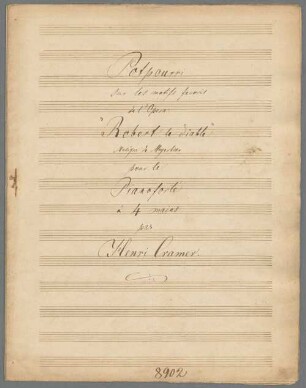 Potpourri
sur les motifs favoris
de l'Opera
"Robert le Diable"
Musique de Meyerbeer
pour le
Pianoforte
à 4 mains
par
Henri Cramer.
8902